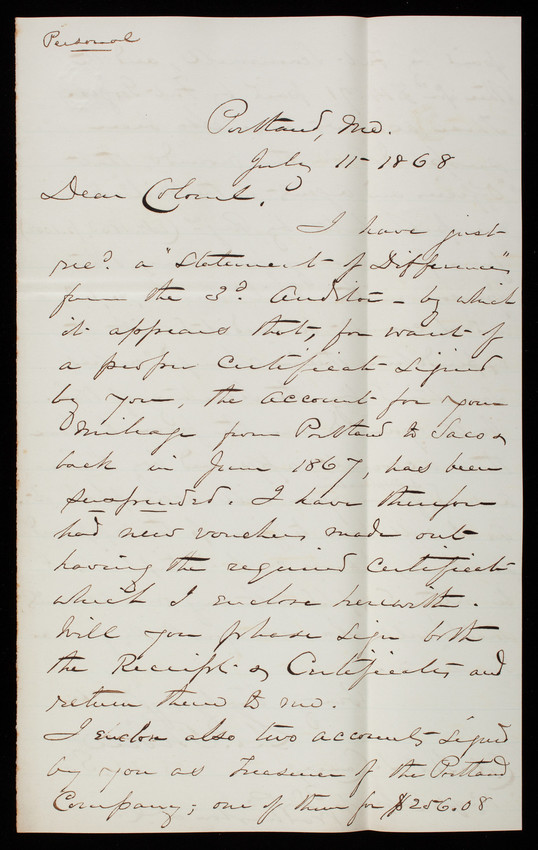 Personal
Portland, Me.
July 11 - 1868
Dear Colonel,
I have just
recd. a "Statement of Differences"
from the 3d. Auditor - by which
it appears that, for want of
a proper certificate signed
by you, the account for your
mileage from Portland to Saco &
back in June 1867, has been
suspended. I have therefore
had new vouchers made out
having the required certificate
which I enclose herewith.
Will you please sign both
the Receipts & Certificates and
return them to me.
I enclose also two accounts signed
by you as Treasurer of the Portland
Company; one of them for $256.08